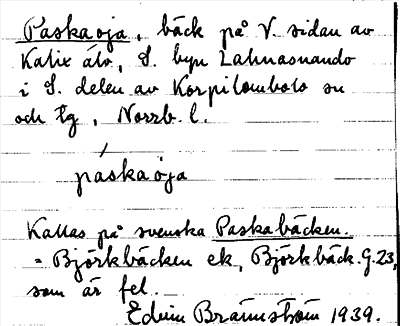 Paskaoja, bäck på V. sidan av
Kalix älv, S. byn Lahnasuando
i S. delen av Korpilombolo sn
och tg, Norrb. l.
páskaoja
Kallas på svenska Paskabäcken.
= Björkbäcken ek, Björkbäck. G.23,
som är fel.
Edvin Brännström 1939.